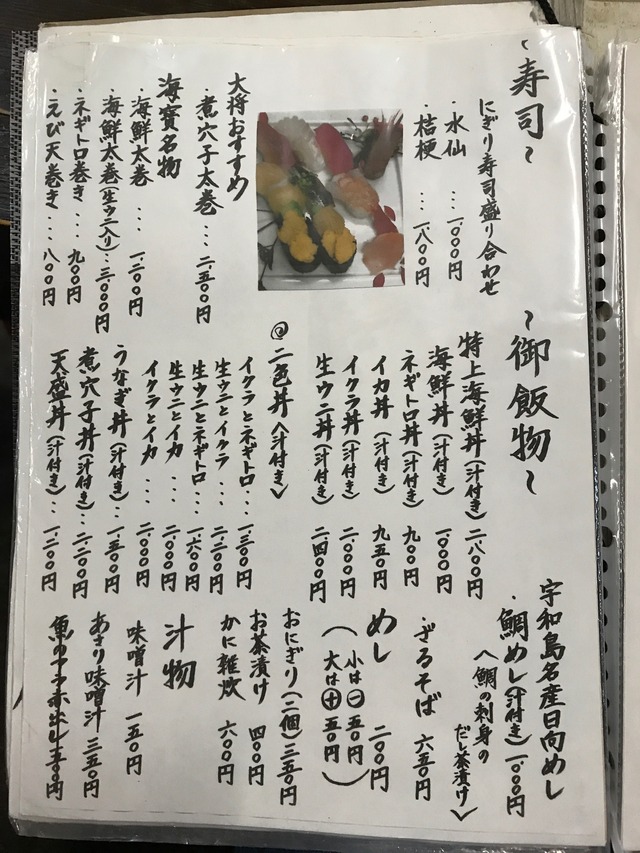 ～寿司～
にぎり寿司盛り合わせ
・水仙 … 一、〇〇〇円
・桔梗 … 一、八〇〇円
大将おすすめ
・煮穴子太巻 … 二、五〇〇円
海寳名物
・海鮮太巻 … 一、二〇〇円
・海鮮太巻(生ウニ入り) … 三、〇〇〇円
・ネギトロ巻き … 九〇〇円
・えび天巻き … 八〇〇円
～御飯物～
特上海鮮丼(汁付き) 二、八〇〇円
海鮮丼(汁付き) 一、〇〇〇円
ネギトロ丼(汁付き) 九〇〇円
イカ丼(汁付き) 九五〇円
イクラ丼(汁付き) 二、〇〇〇円
生ウニ丼(汁付き) 二、四〇〇円
◎二色丼〈汁付き〉
イクラとネギトロ … 一、三〇〇円
生ウニとイクラ … 二、二〇〇円
生ウニとネギトロ … 一、六〇〇円
生ウニとイカ … 二、〇〇〇円
イクラとイカ … 二、〇〇〇円
うなぎ丼(汁付き) … 一、五〇〇円
煮穴子丼(汁付き) … 二、二〇〇円
天盛丼(汁付き) … 一、二〇〇円
宇和島名産日向めし
・鯛めし(汁付き) 一、〇〇〇円
〈鯛の刺身の
だし茶漬け〉
・ざるそば 六五〇円
めし 二〇〇円
(小は㊀五〇円
大は㊉五〇円)
おにぎり(二個) 三五〇円
お茶漬け 四〇〇円
かに雑炊 六〇〇円
汁物
味噌汁 一五〇円
あさり味噌汁 三五〇円
魚のアラ赤出し 三五〇円